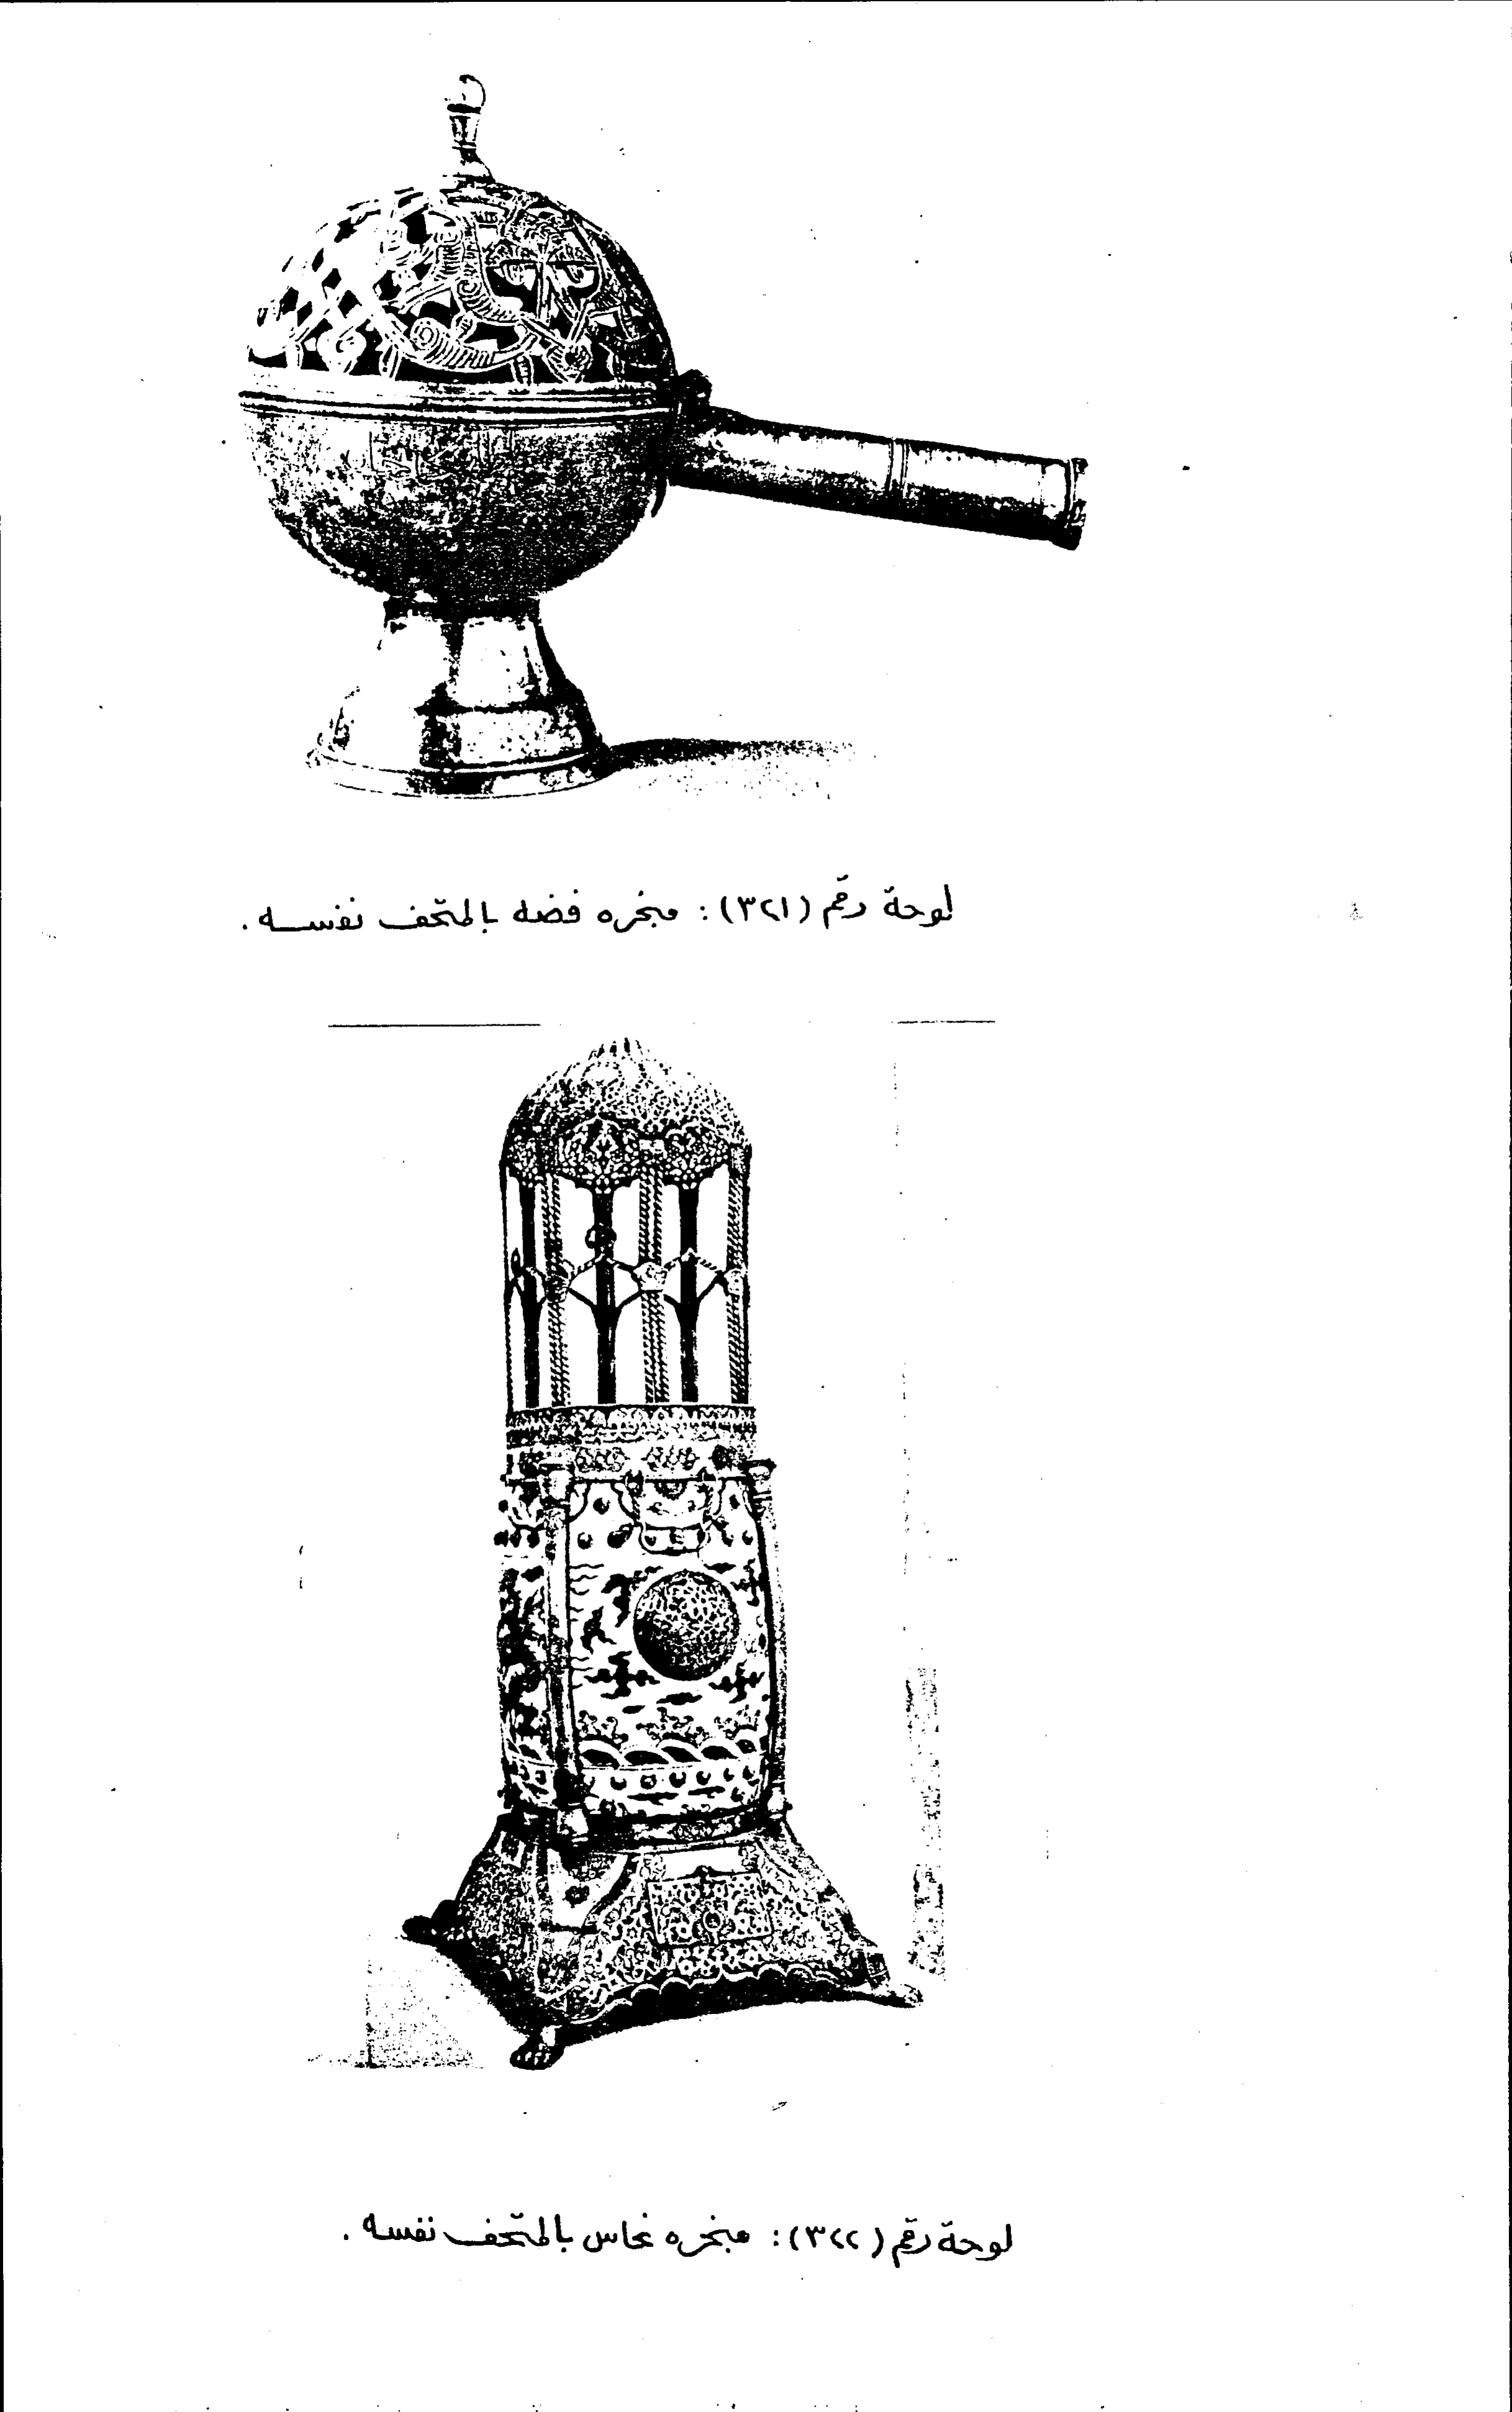 لوحة رقم (٣٢١): مبخره فضه بالمتحف نفسه.
لوحة رقم (٣٢٢): مبخره نحاس بالمتحف نفسه.